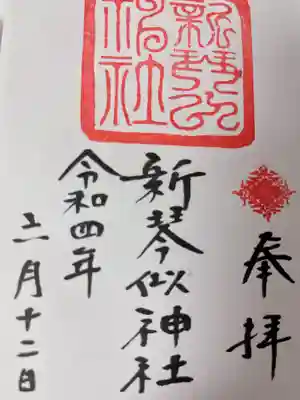 奉拝
新琴似神社
令和四年
六月十二日
新琴似
神社